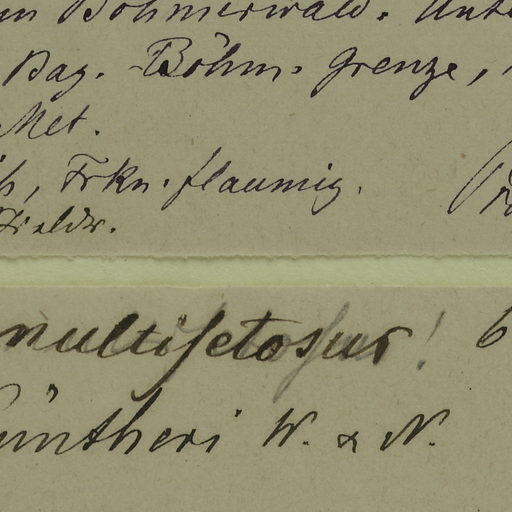 Böhmerwald. Unt
Bay. Böhm. Grenze,
Met.
Frkn. flaumig.
multisetosus! 6
üntheri W. & N.